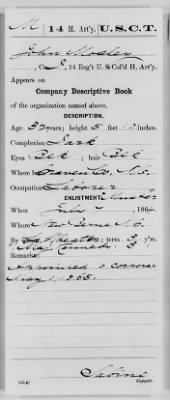 M 14 H. Art'y. U.S.C.T.
John Mosley
, Co. , 14 Reg't U. S. Col'd H. Art'y.
Appears on
Company Descriptive Book
of the organization named above.
DESCRIPTION.
Age years; height 5 feet inches.
Complexion Dark
Eyes Blk ; hair Blk
Where Craven Co., N.C.
Occupation Laborer
ENLISTMENT.
When July , 1864
Where New Berne N.C.
By ; term 3 y'rs.
Remarks:
Appointed Corporal
May 1, 1865.
Copyist.